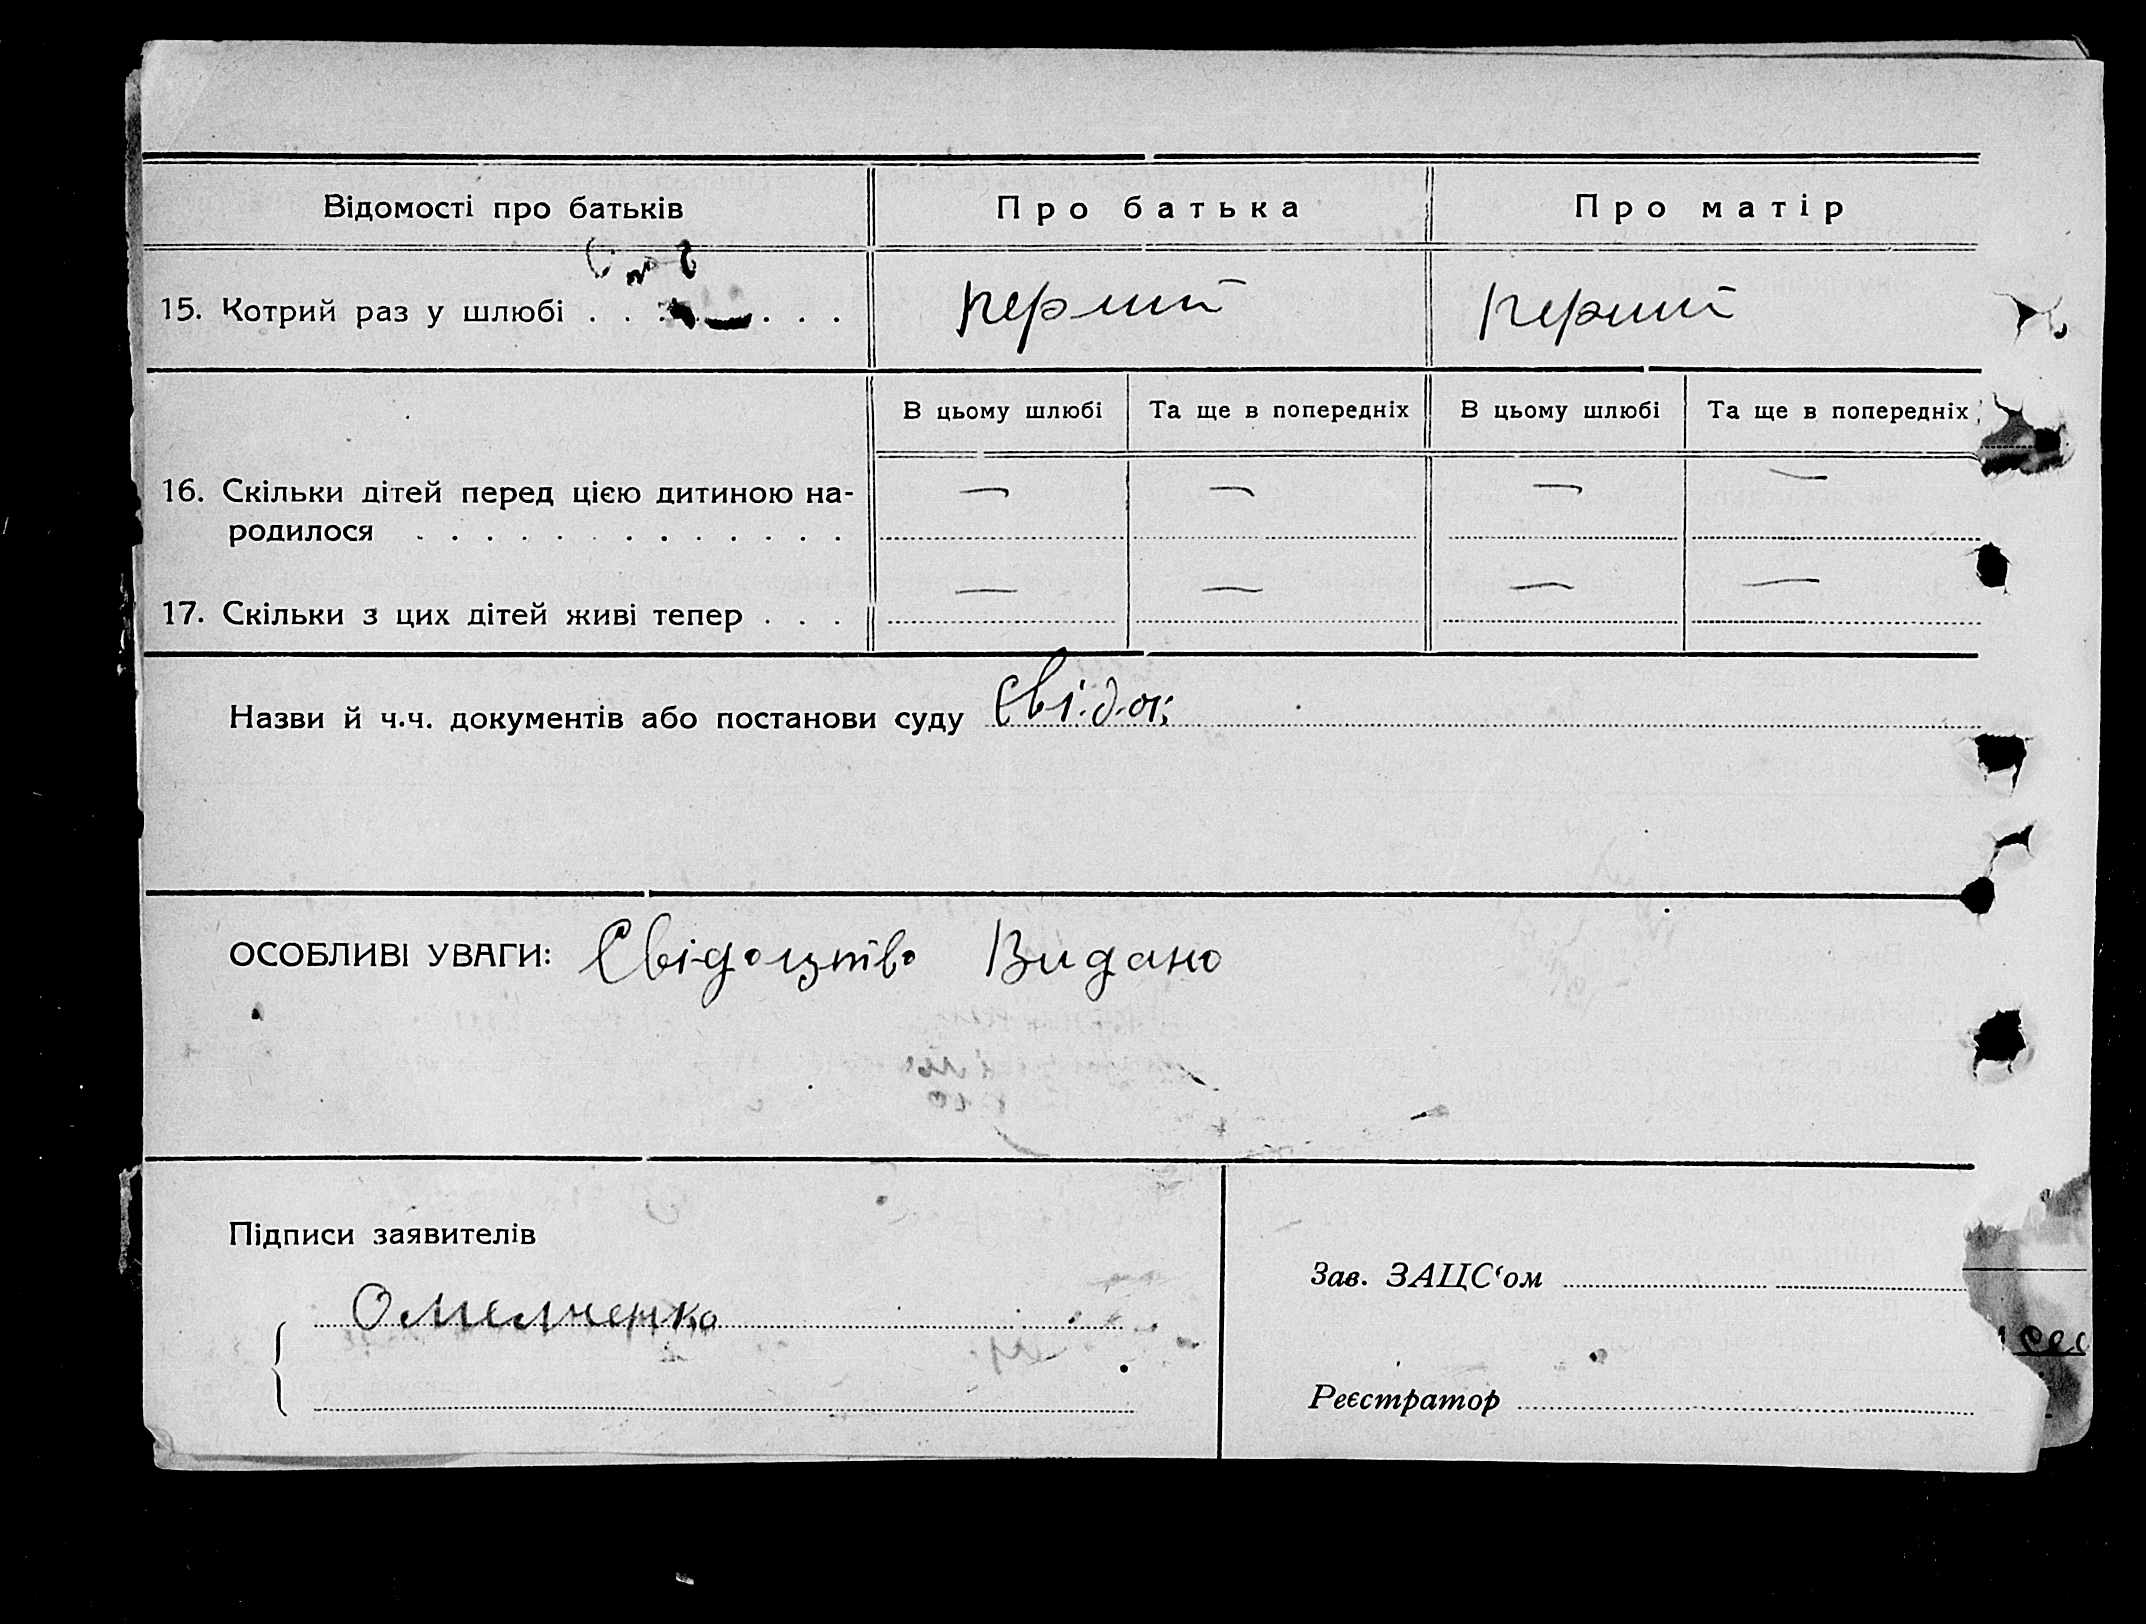 Відомості про батьків Про батька Про матір
15. Котрий раз у шлюбі . . . . . . . перший перший
В цьому шлюбі Та ще в попередніх В цьому шлюбі Та ще в попередніх
16. Скільки дітей перед цією дитиною на- — — — —
родилося . . . . . . . . . . . . .
17. Скільки з цих дітей живі тепер . . . — — — —
Назви й ч.ч. документів або постанови суду Свідок
ОСОБЛИВІ УВАГИ: Свідоцтво Видано
Підписи заявителів
Зав. ЗАЦС‘ом
Омелненко
Реєстратор